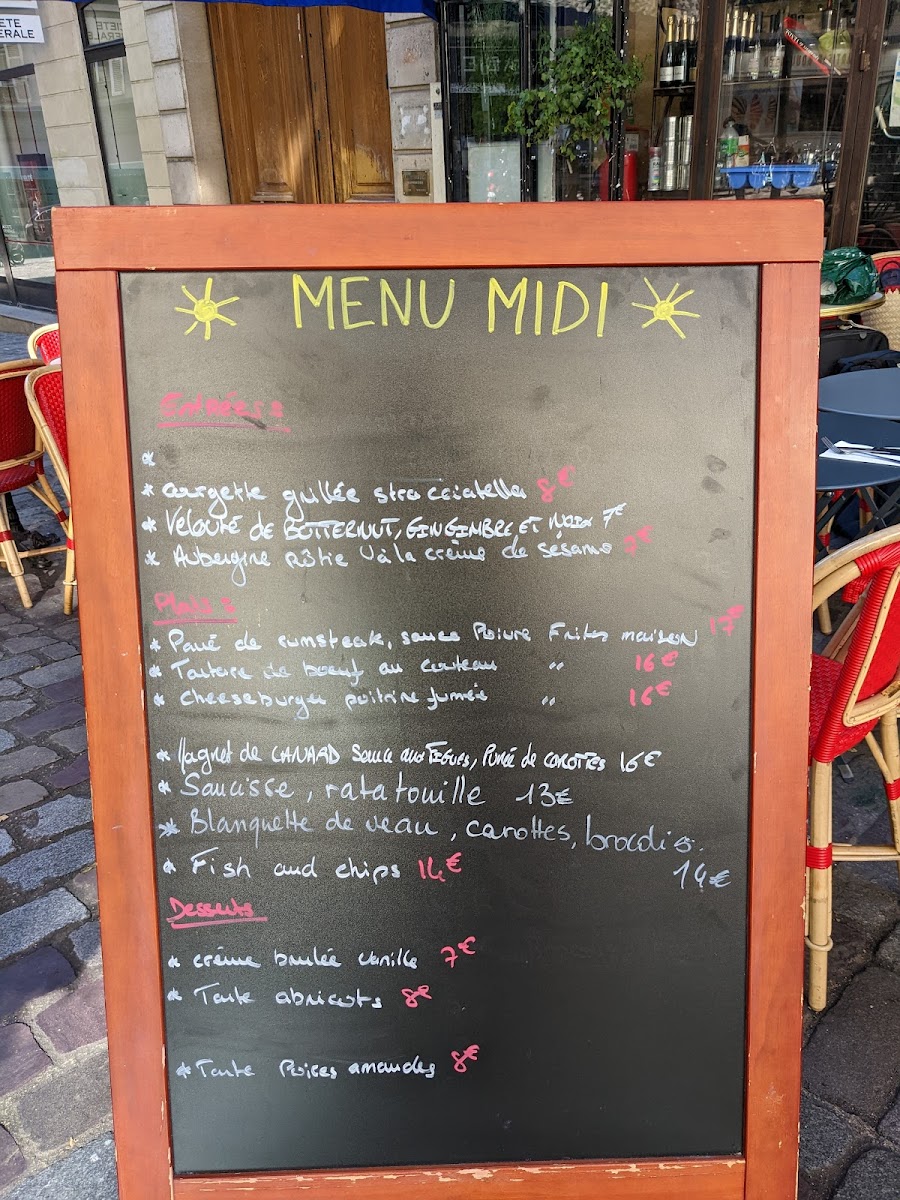 ETE
ERALE
MENU MIDI
Entrées :
*
* Courgette grillée stracciatella 8€
* Velouté de BUTTERNUT, GINGIMBRE ET 7€
* Aubergine rôtie à la crème de sésame
Plats :
* Pavé de rumsteak, sauce Poivre Frites maison 17€
* Tartare de boeuf au couteau " 16€
* Cheeseburger poitrine fumée " 16€
* Magret de CANARD Sauce aux Figues, Purée de carottes 16€
* Saucisse, ratatouille 13€
* Blanquette de veau, carottes,
14€
* Fish and chips 14€
Desserts
* Crème brulée vanille 7€
* Tarte abricots 8€
* Tarte Poires amandes 8€